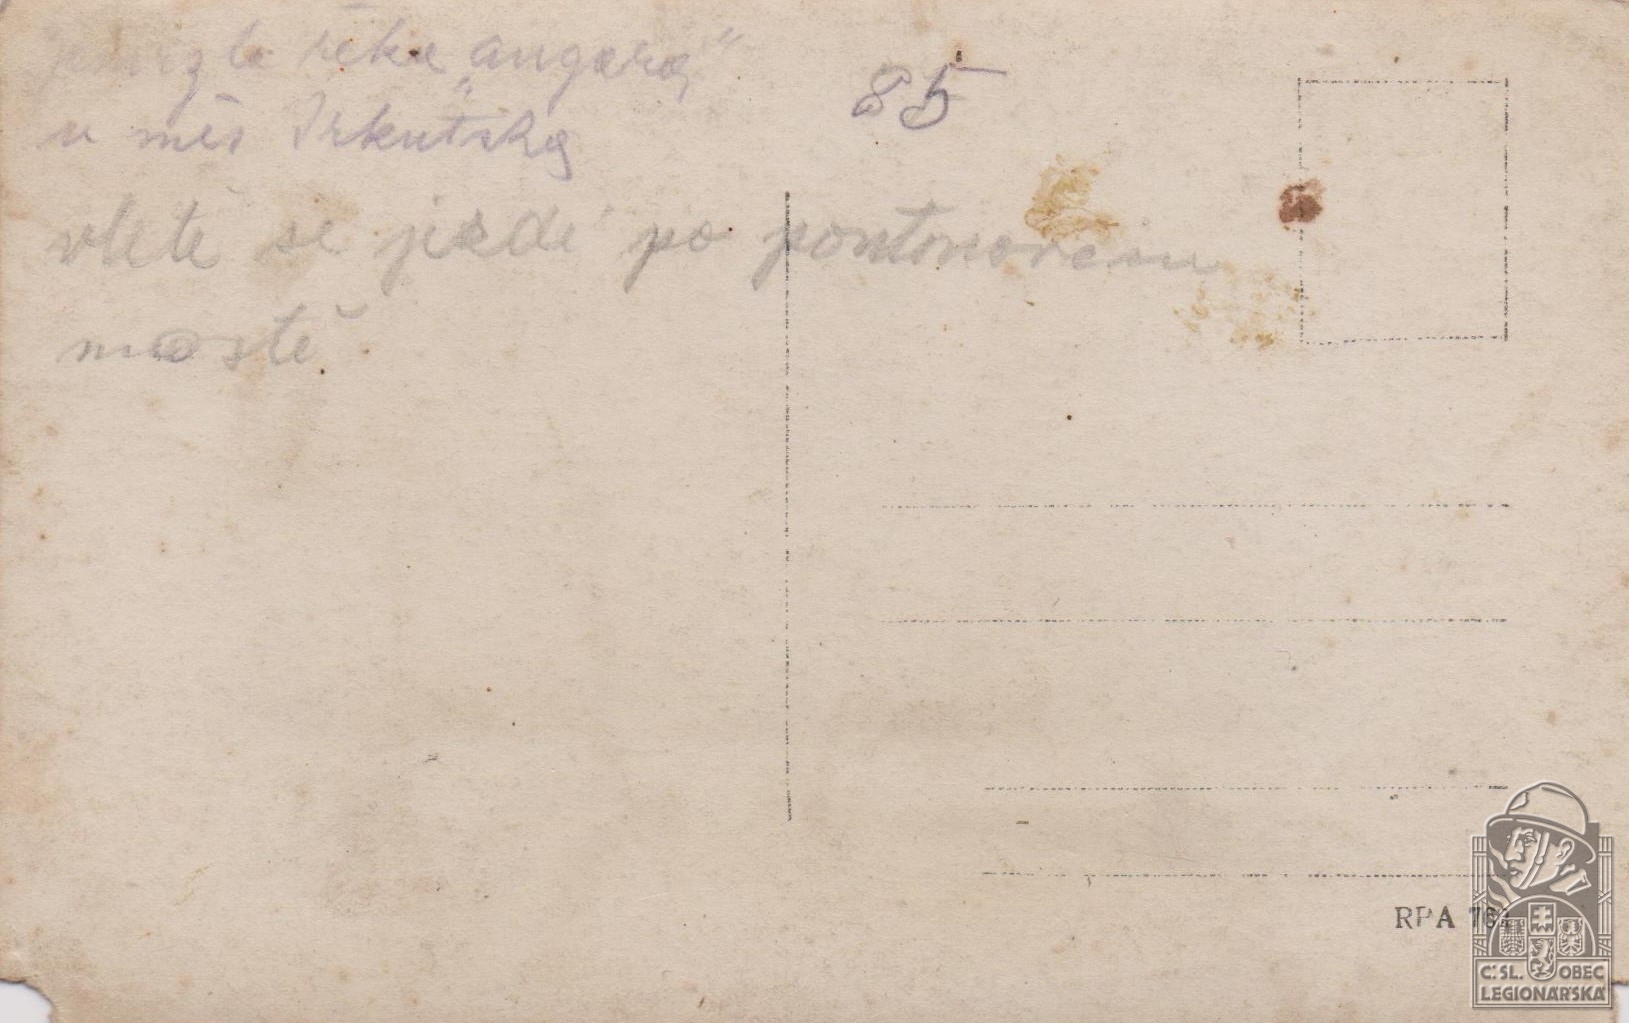 řeka „Angara"
u měs Irkutska
85
vletě se jezdí po pontonovém
mostě
RPA 76
Č.SL. OBEC
LEGIONÁŘSKÁ